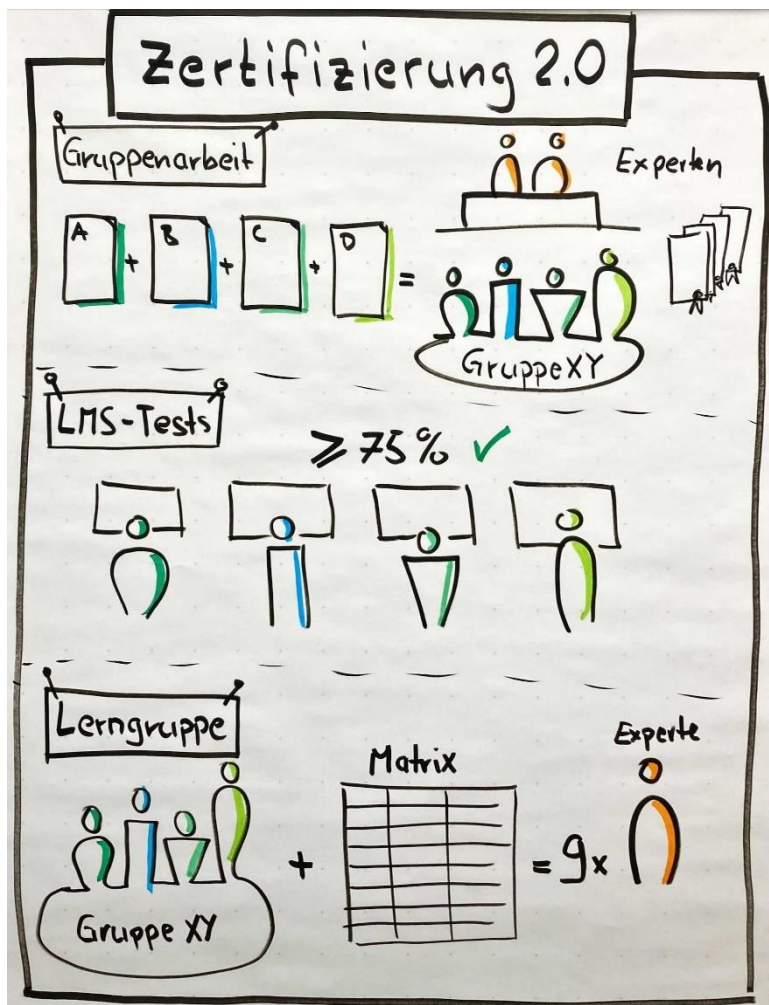 Zertifizierung 2.0
Gruppenarbeit
Experten
A + B + C + D =
Gruppe XY
LMS-Tests
≥ 75% ✓
Lerngruppe
Matrix
Experte
+ = 9x
Gruppe XY